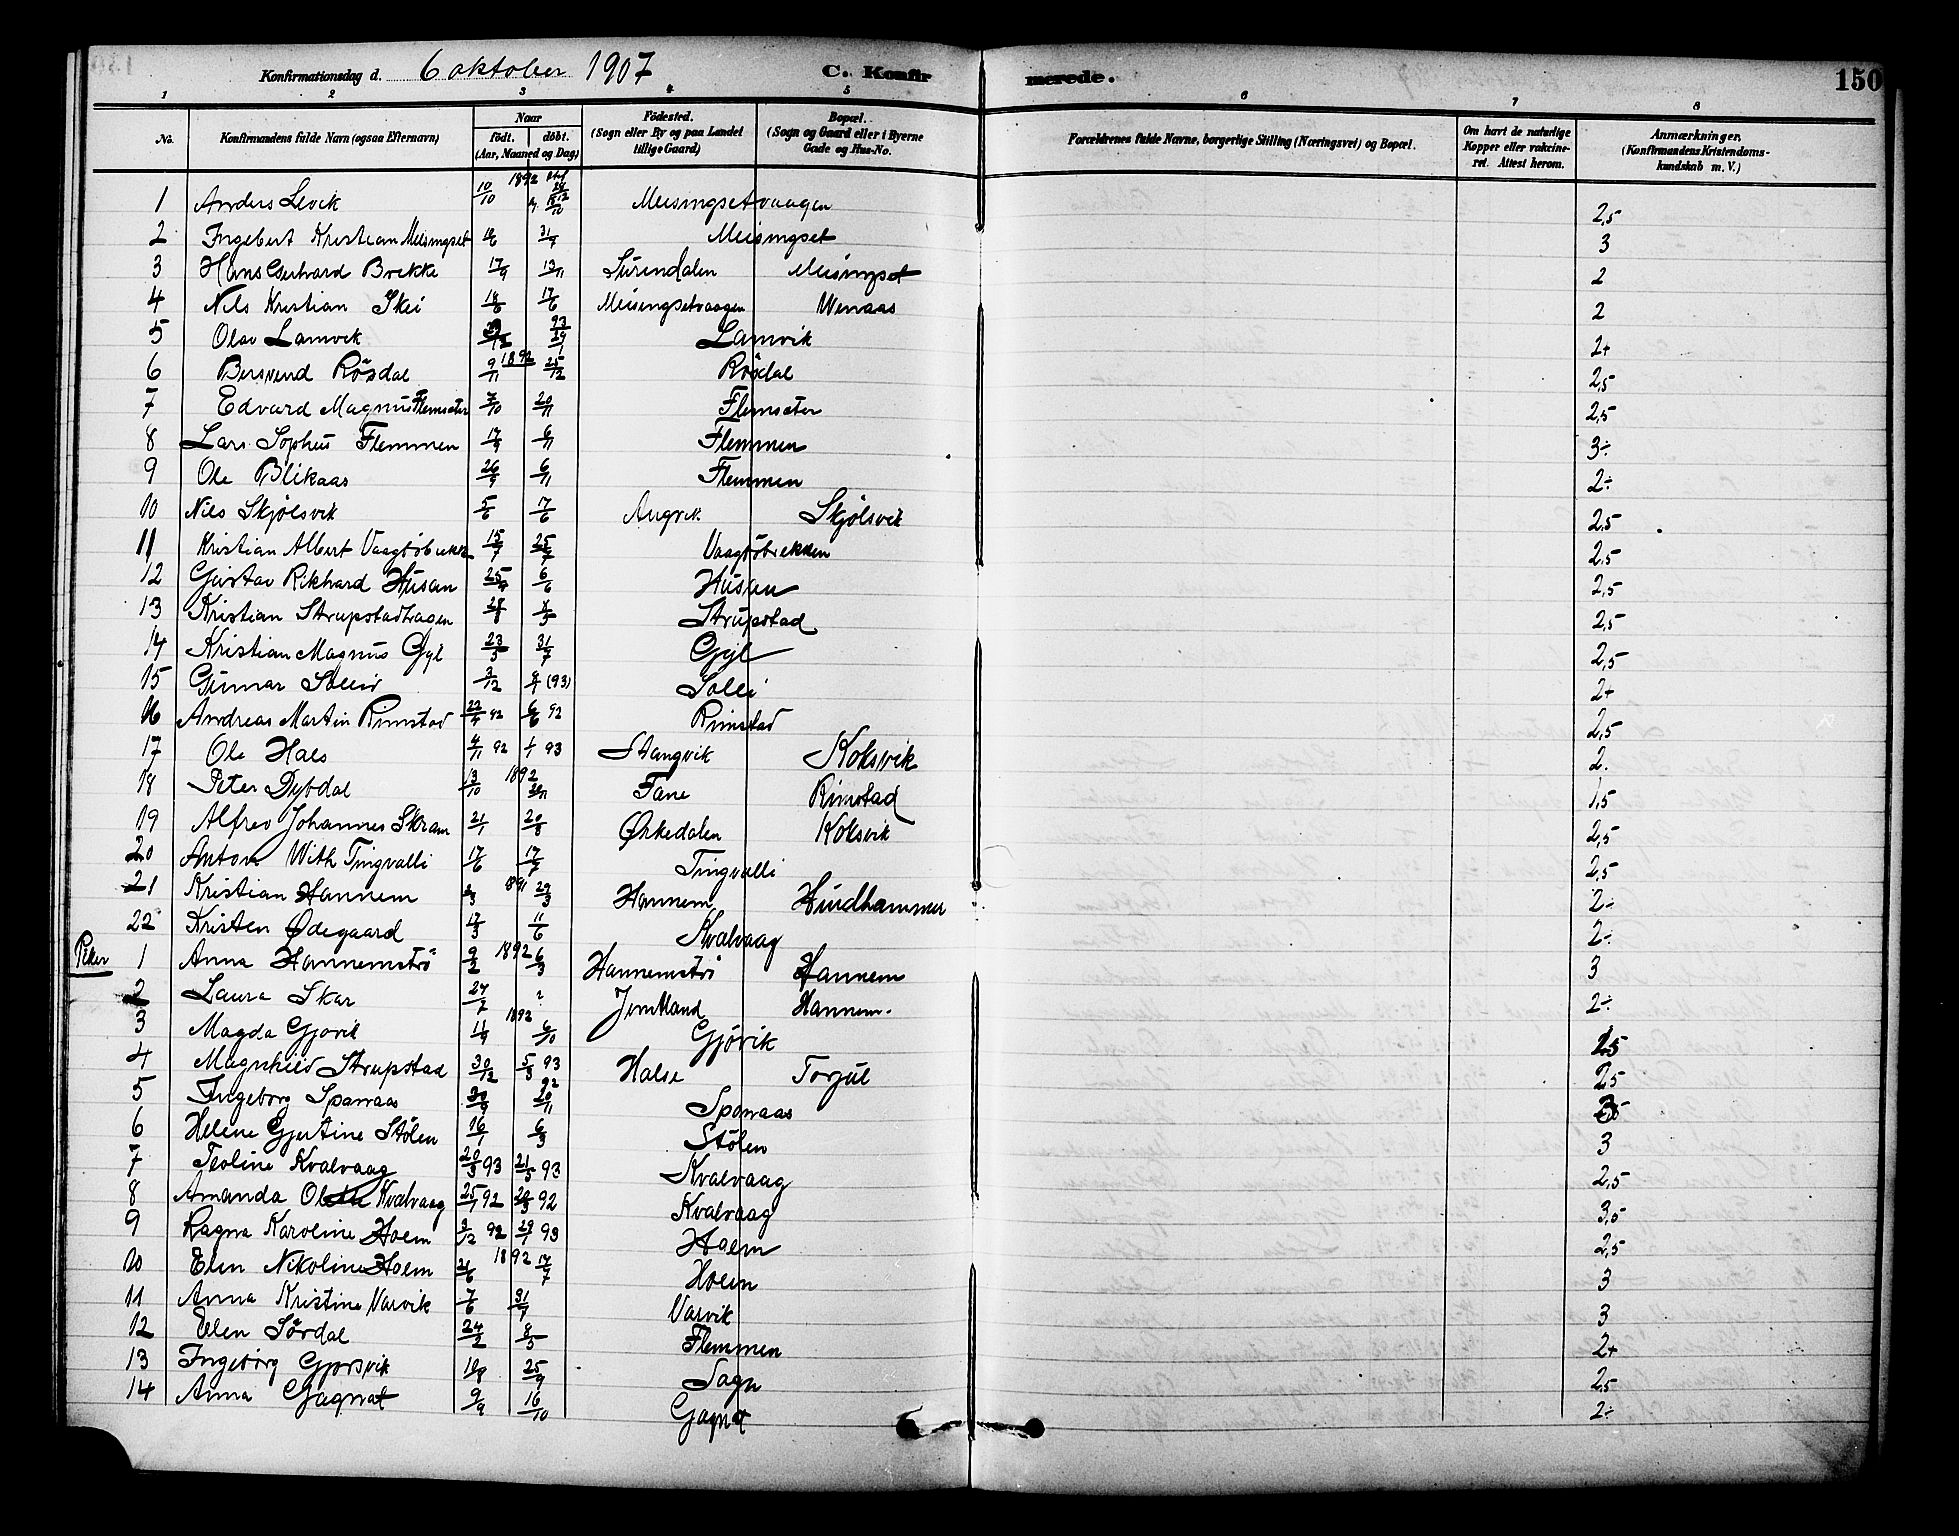 Konfirmationsdag d. 6 oktober 1907 C. Konfir merede. 150
1 2 3 4 5 6 7 8
No. Konfirmandens fulde Navn (ogsaa Efternavn) Naar født. døbt. (Aar, Maaned og Dag) Födested. (Sogn eller By og paa Landet tillige Gaard) Bopæl. (Sogn og Gaard eller i Byerne Gade og Hus-No. Forældrenes fulde Navne, borgerlige Stilling (Næringsvei) og Bopæl. Om havt de naturlige Kopper eller vakcineret. Attest herom. Anmærkninger. (Konfirmandens Kristendomskundskab m. V.)
1 Anders Levik 10/10 1892 Meisingsetvaagen 2,5
2 Ingebert Kristian Meisingset 31/7 Meisingset 3
3 Hans Gerhard Brekke 17/9 13/11 Surendalen Meisingset 2
4 Nils Kristian Skei 18/6 17/6 Meisingsetvaagen Wenaas 2
5 Olav Lamvik 93 Lamvik 2+
6 Bersvend Rösdal 9/11 1892 25/12 Rösdal 2,5
7 Edvard Magnus Flemsæter 7/10 20/11 Flemsæter 2,5
8 Lars Sophus Flemmen 17/9 6/11 Flemmen 3÷
9 Ole Blikaas 26/9 6/11 Flemmen 2÷
10 Nils Skjølsvik 5/6 17/6 Angvik Skjølsvik 2,5
11 Kristian Albert Vaagböbekken 15/7 25/7 Vaagböbekken 2,5
12 Gustav Rikhard Husøen 6/6 Husøen 2,5
13 Kristian Strupstadhagen Strupstad 2,5
14 Kristian Magnus Gyl 23/5 31/7 Gyl 2,5
15 Gunnar Sollid 2/12 (93) Sollid 2+
16 Andreas Martin Rimstad 22/4 92 6/6 92 Rimstad 2,5
17 Ole Hals 4/11 92 1/1 93 Stangvik Koksvik 2.
18 Peter Dybdal 13/10 1892 Tane Rimstad 1,5
19 Alfred Johannes Skram 21/1 20/8 Ørkedalen Koksvik 2,5
20 Anton With Tingvalli 17/6 17/7 Tingvalli 2,5
21 Kristian Hannem 1891 29/3 Hannem Hindhammer 2÷
22 Kristen Ødegaard 17/3 11/6 Kvalvaag 2÷
Piker 1 Anna Hannemströ 9/2 1892 6/3 Hannemströ Hannem 3
2 Laura Skar 24/7 ? Jemtland Hannem. 2÷
3 Magda Gjövik 11/9 1892 6/10 Gjövik 2,5
4 Magnhild Strupstad 30/12 5/3 93 Halse Torjul 2,5
5 Ingeborg Sparraas 30/9 92 20/11 Sparraas 3
6 Helene Gjertine Stölen 16/1 6/3 Stölen 3
7 Teoline Kvalvaag 20/3 93 21/5 93 Kvalvaag 2,5
8 Amanda Kvalvaag 25/1 92 92 Kvalvaag 3,5
9 Ragna Karoline Holm 2/12 92 29/1 93 Holm 2,5
10 Elen Nikoline Holm 21/6 1892 17/7 Holm 3
11 Anna Kristine Varvik 7/6 31/7 Varvik 3
12 Ellen Sördal 24/2 8/5 Flemmen 2+
13 Ingeborg Gjørsvik 25/9 Sagn 2,5
14 Anna Gagnat 9/9 16/10 Gagnat 2÷